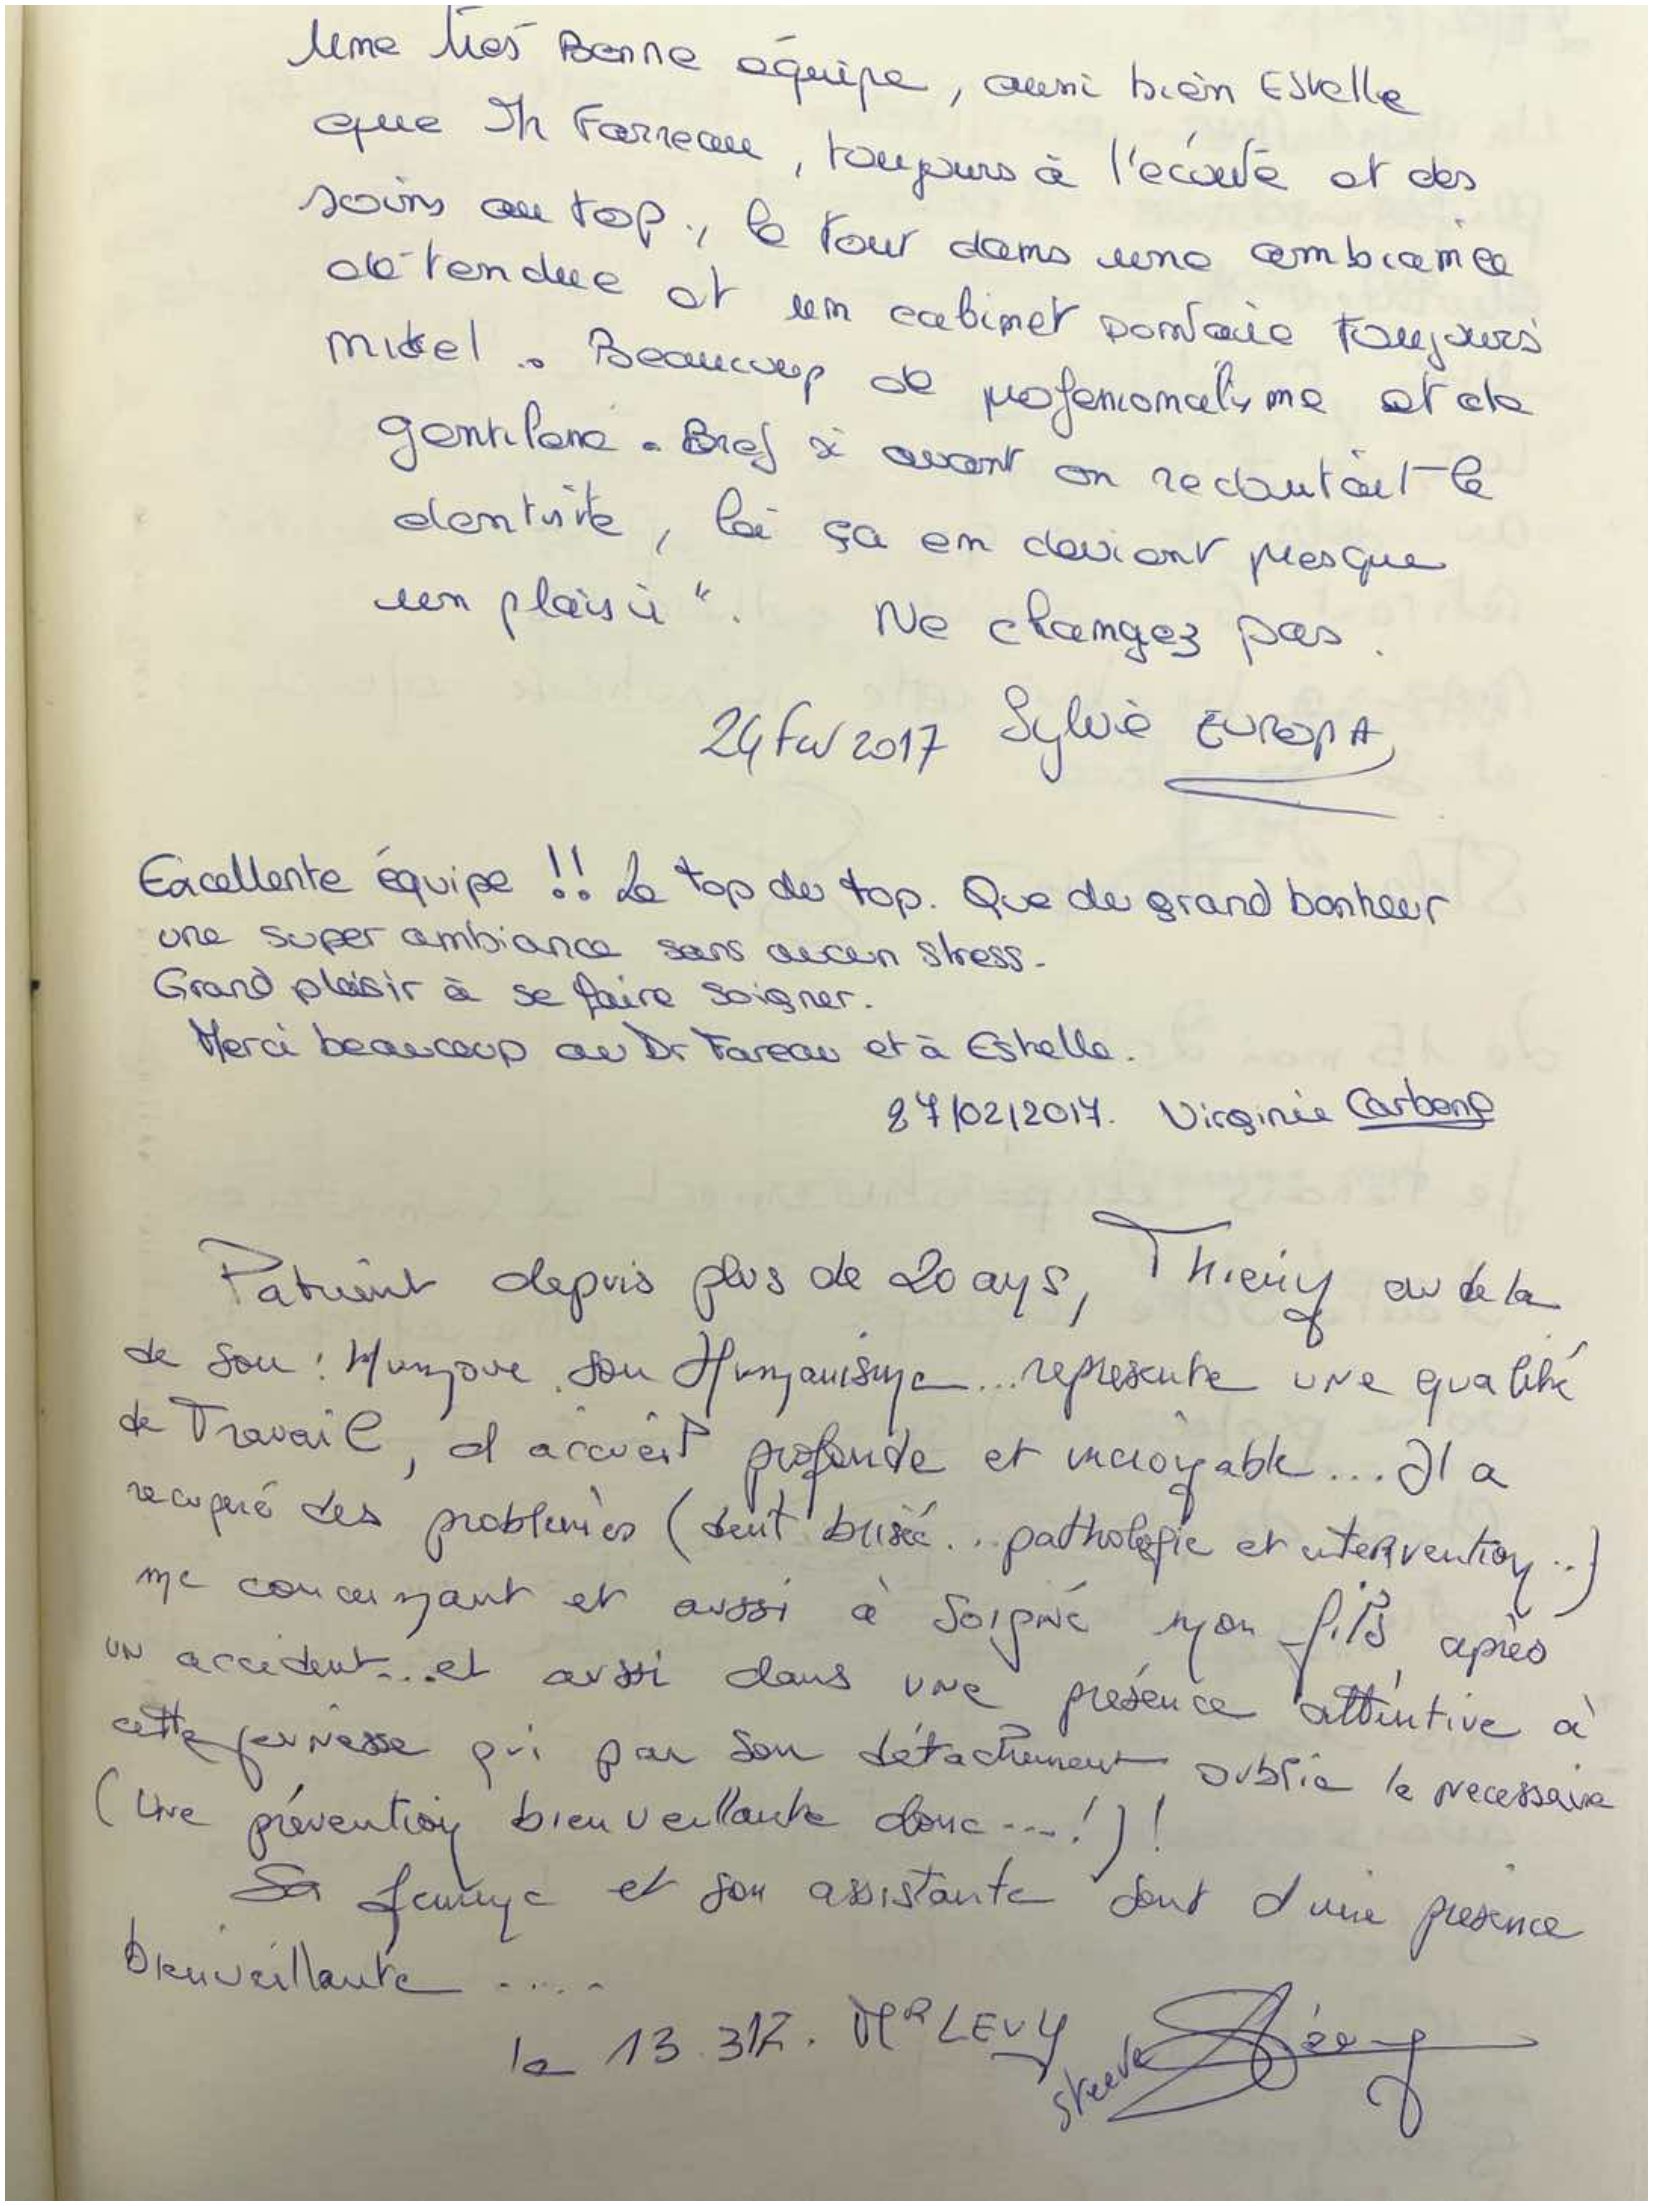 Une très Bonne équipe, aussi bien Estelle
que Th Farreau, toujours à l'écoute et des
soins au top, le tout dans une ambiance
détendue et un cabinet dentaire toujours
nickel. Beaucoup de professionnalisme et de
gentillesse. Bref si avant on redoutait le
dentiste, là ça en devient presque
un plaisir". Ne changez pas.
24 Fev 2017 Sylvie EUROPA
Excellente équipe !! Le top du top. Que du grand bonheur
une super ambiance sans aucun stress.
Grand plaisir à se faire soigner.
Merci beaucoup au Dr Fareau et à Estelle.
27/02/2017. Virginie
Patient depuis plus de 20 ans, Thierry au de la
de son : Humour son Humanisme... représente une qualité
de Travail, d'accueil profonde et incroyable... Il a
recuperé des problèmes (dent brisée... pathologie et intervention..)
me concernant et aussi à soigné mon fils après
un accident... et aussi dans une présence attentive à
cette jeunesse qui par son détachement oublie le necessaire
(Une prévention bienveillante donc....!)!
Sa femme et son assistante sont d'une présence
bienveillante .....
le 13.3.17. Mr LEVY
Steeve